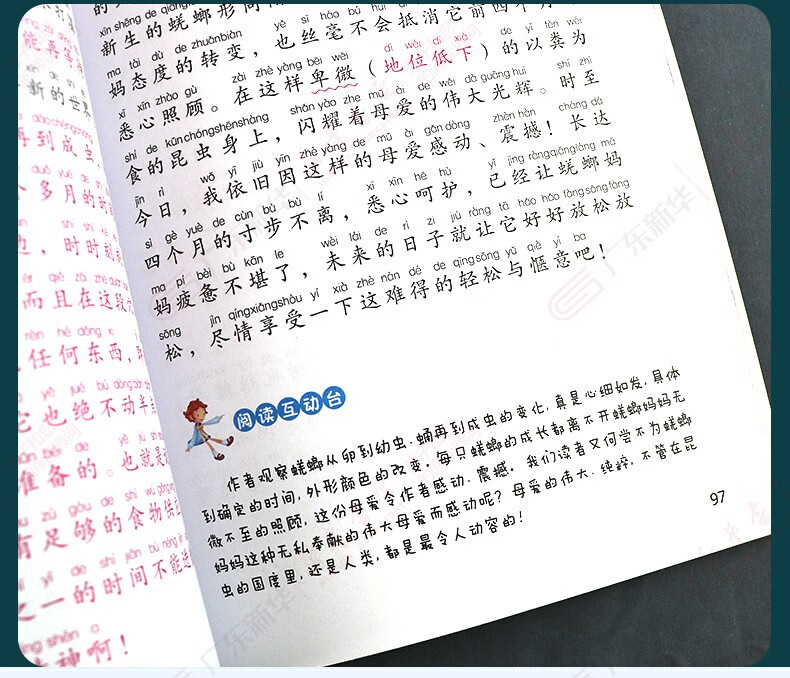 能再等
新的世界
再到成虫
个多月的时
边，时时刻
而且在这段
任何东西，
它也绝不动半
准备的。也就是
有足够的食物供
之一的时间不能
神啊！
xīn shēng de qiāng
新生的蜣螂形
mā tài dù de zhuǎnbiàn yě sī háo bú huì
妈态度的转变，也丝毫不会抵消它前四个月
xī xīn zhào gù zài zhè yàng bēi wēi dì wèi dī xià de yǐ fèn wéi
悉心照顾。在这样卑微（地位低下）的以粪为
shí de kūnchóngshēnshàng shǎn yào zhe mǔ ài de wěi dà guāng huī shí zhì
食的昆虫身上，闪耀着母爱的伟大光辉。时至
jīn rì wǒ yī jiù yīn zhè yàng de mǔ ài gǎn dòng zhèn hàn cháng dá
今日，我依旧因这样的母爱感动、震撼！长达
sì gè yuè de cùn bù bù lí xī xīn hē hù yǐ jīng ràng qiāng láng mā
四个月的寸步不离，悉心呵护，已经让蜣螂妈
ma pí bèi bù kān le wèi lái de rì zi jiù ràng tā hǎo hǎo fàng sōng fàng
妈疲惫不堪了，未来的日子就让它好好放松放
sōng jìn qíng xiǎng shòu yí xià zhè nán dé de qīng sōng yǔ qiè yì ba
松，尽情享受一下这难得的轻松与惬意吧！
阅读互动台
作者观察蜣螂从卵到幼虫、蛹再到成虫的变化，真是心细如发，具体
到确定的时间，外形颜色的改变。每只蜣螂的成长都离不开蜣螂妈妈无
微不至的照顾，这份母爱令作者感动、震撼。我们读者又何尝不为蜣螂
妈妈这种无私奉献的伟大母爱而感动呢？母爱的伟大、纯粹，不管在昆
虫的国度里，还是人类，都是最令人动容的！
97
广东新华